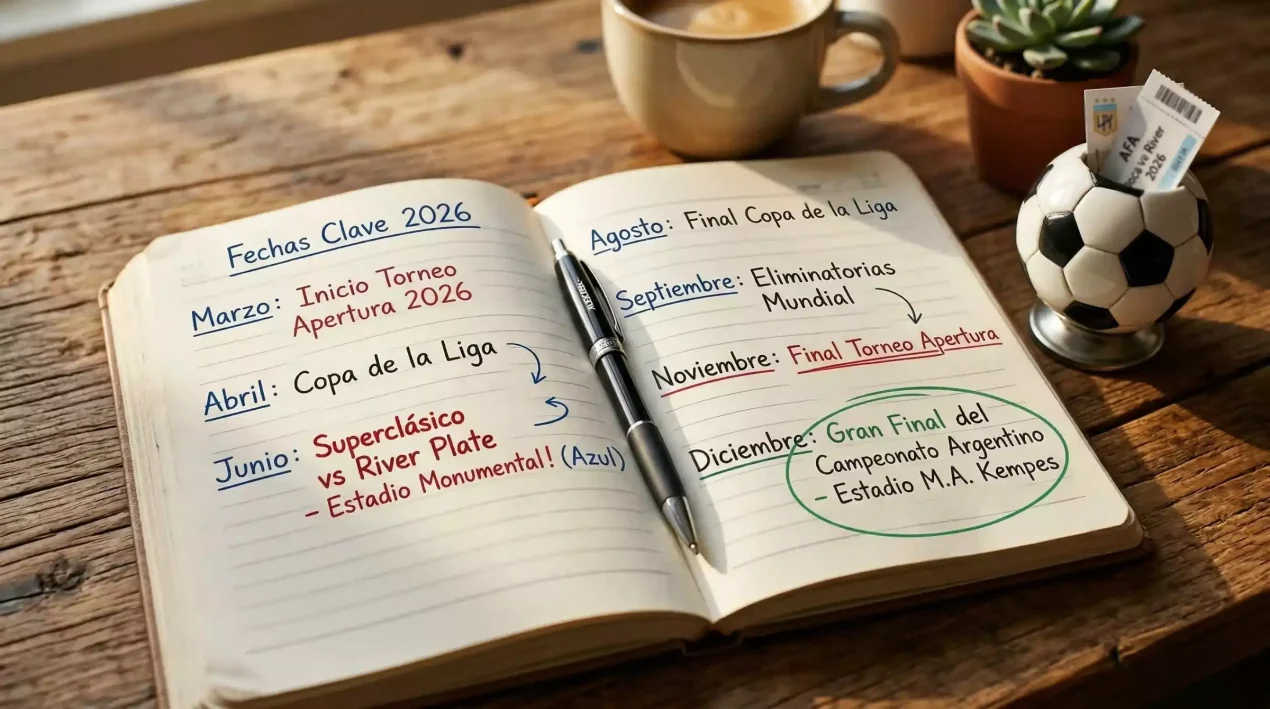 Fechas Clave 2026
Marzo: Inicio Torneo
Apertura 2026
Abril: Copa de la Liga
Junio: Superclásico
vs River Plate
- Estadio Monumental! (Azul)
Agosto: Final Copa de la Liga
Septiembre: Eliminatorias
Mundial
Noviembre: Final Torneo Apertura
Diciembre: Gran Final del
Campeonato Argentino
- Estadio M.A. Kempes
AFA
vs River
2026